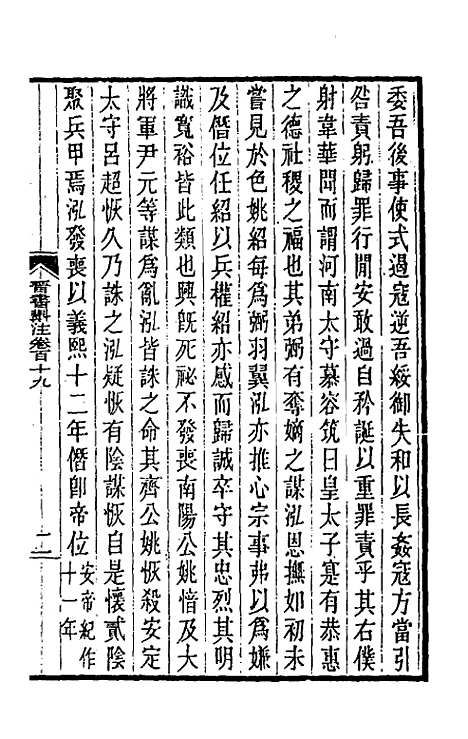 委吾後事使式過寇逆吾綏御失和以長姦寇方當引
咎責躬歸罪行閒安敢過自矜誕以重罪責乎其右僕
射韋華聞而謂河南太守慕容筑曰皇太子寔有恭惠
之德社稷之福也其弟弼有奪嫡之謀泓恩撫如初未
嘗見於色姚紹每爲弼羽翼泓亦推心宗事弗以爲嫌
及僭位任紹以兵權紹亦感而歸誠卒守其忠烈其明
識寬裕皆此類也興旣死祕不發喪南陽公姚愔及大
將軍尹元等謀爲亂泓皆誅之命其齊公姚恢殺安定
太守呂超恢久乃誅之泓疑恢有陰謀恢自是懷貳陰
聚兵甲焉泓發喪以義熙十二年僭卽帝位安帝紀作
十一年
晉書斠注卷百十九